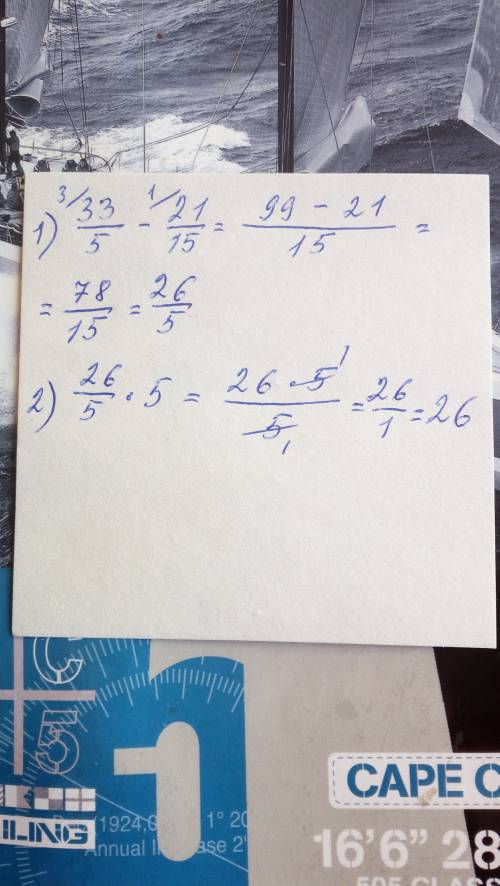 1) 3/ 33/5 - 1/ 21/15 = (99 - 21)/15 =
= 78/15 = 26/5
2) 26/5 · 5 = (26 · 5 1)/(5 1) = 26/1 = 26
C
5
1
ILING
1924,0 1° 20
Annual In ase 2'
CAPE C
16'6" 28
505 CLASS